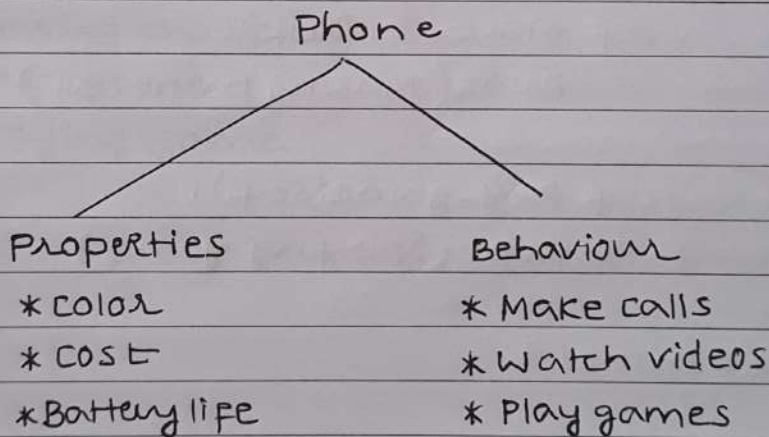 Phone
Properties
* color
* cost
* Battery life
Behaviour
* Make calls
* Watch videos
* Play games